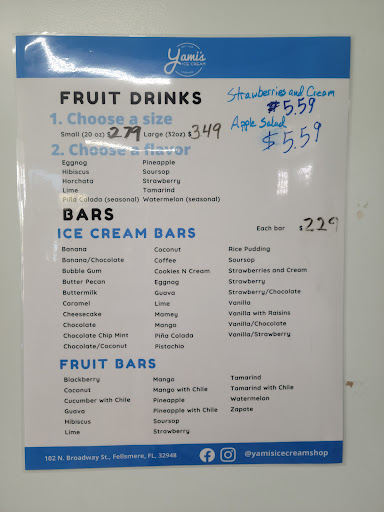 Yami's
ICE CREAM
FRUIT DRINKS
Strawberries and Cream
$5.59
Apple Salad
$5.59
1. Choose a size
Small (20 oz) $279 Large (32oz) $349
2. Choose a flavor
Eggnog Pineapple
Hibiscus Soursop
Horchata Strawberry
Lime Tamarind
Piña Colada (seasonal) Watermelon (seasonal)
BARS
ICE CREAM BARS Each bar $229
Banana Coconut Rice Pudding
Banana/Chocolate Coffee Soursop
Bubble Gum Cookies N Cream Strawberries and Cream
Butter Pecan Eggnog Strawberry
Buttermilk Guava Strawberry/Chocolate
Caramel Lime Vanilla
Cheesecake Mamey Vanilla with Raisins
Chocolate Mango Vanilla/Chocolate
Chocolate Chip Mint Piña Colada Vanilla/Strawberry
Chocolate/Coconut Pistachio
FRUIT BARS
Blackberry Mango Tamarind
Coconut Mango with Chile Tamarind with Chile
Cucumber with Chile Pineapple Watermelon
Guava Pineapple with Chile Zapote
Hibiscus Soursop
Lime Strawberry
102 N. Broadway St., Fellsmere, FL, 32948 @yamisicecreamshop